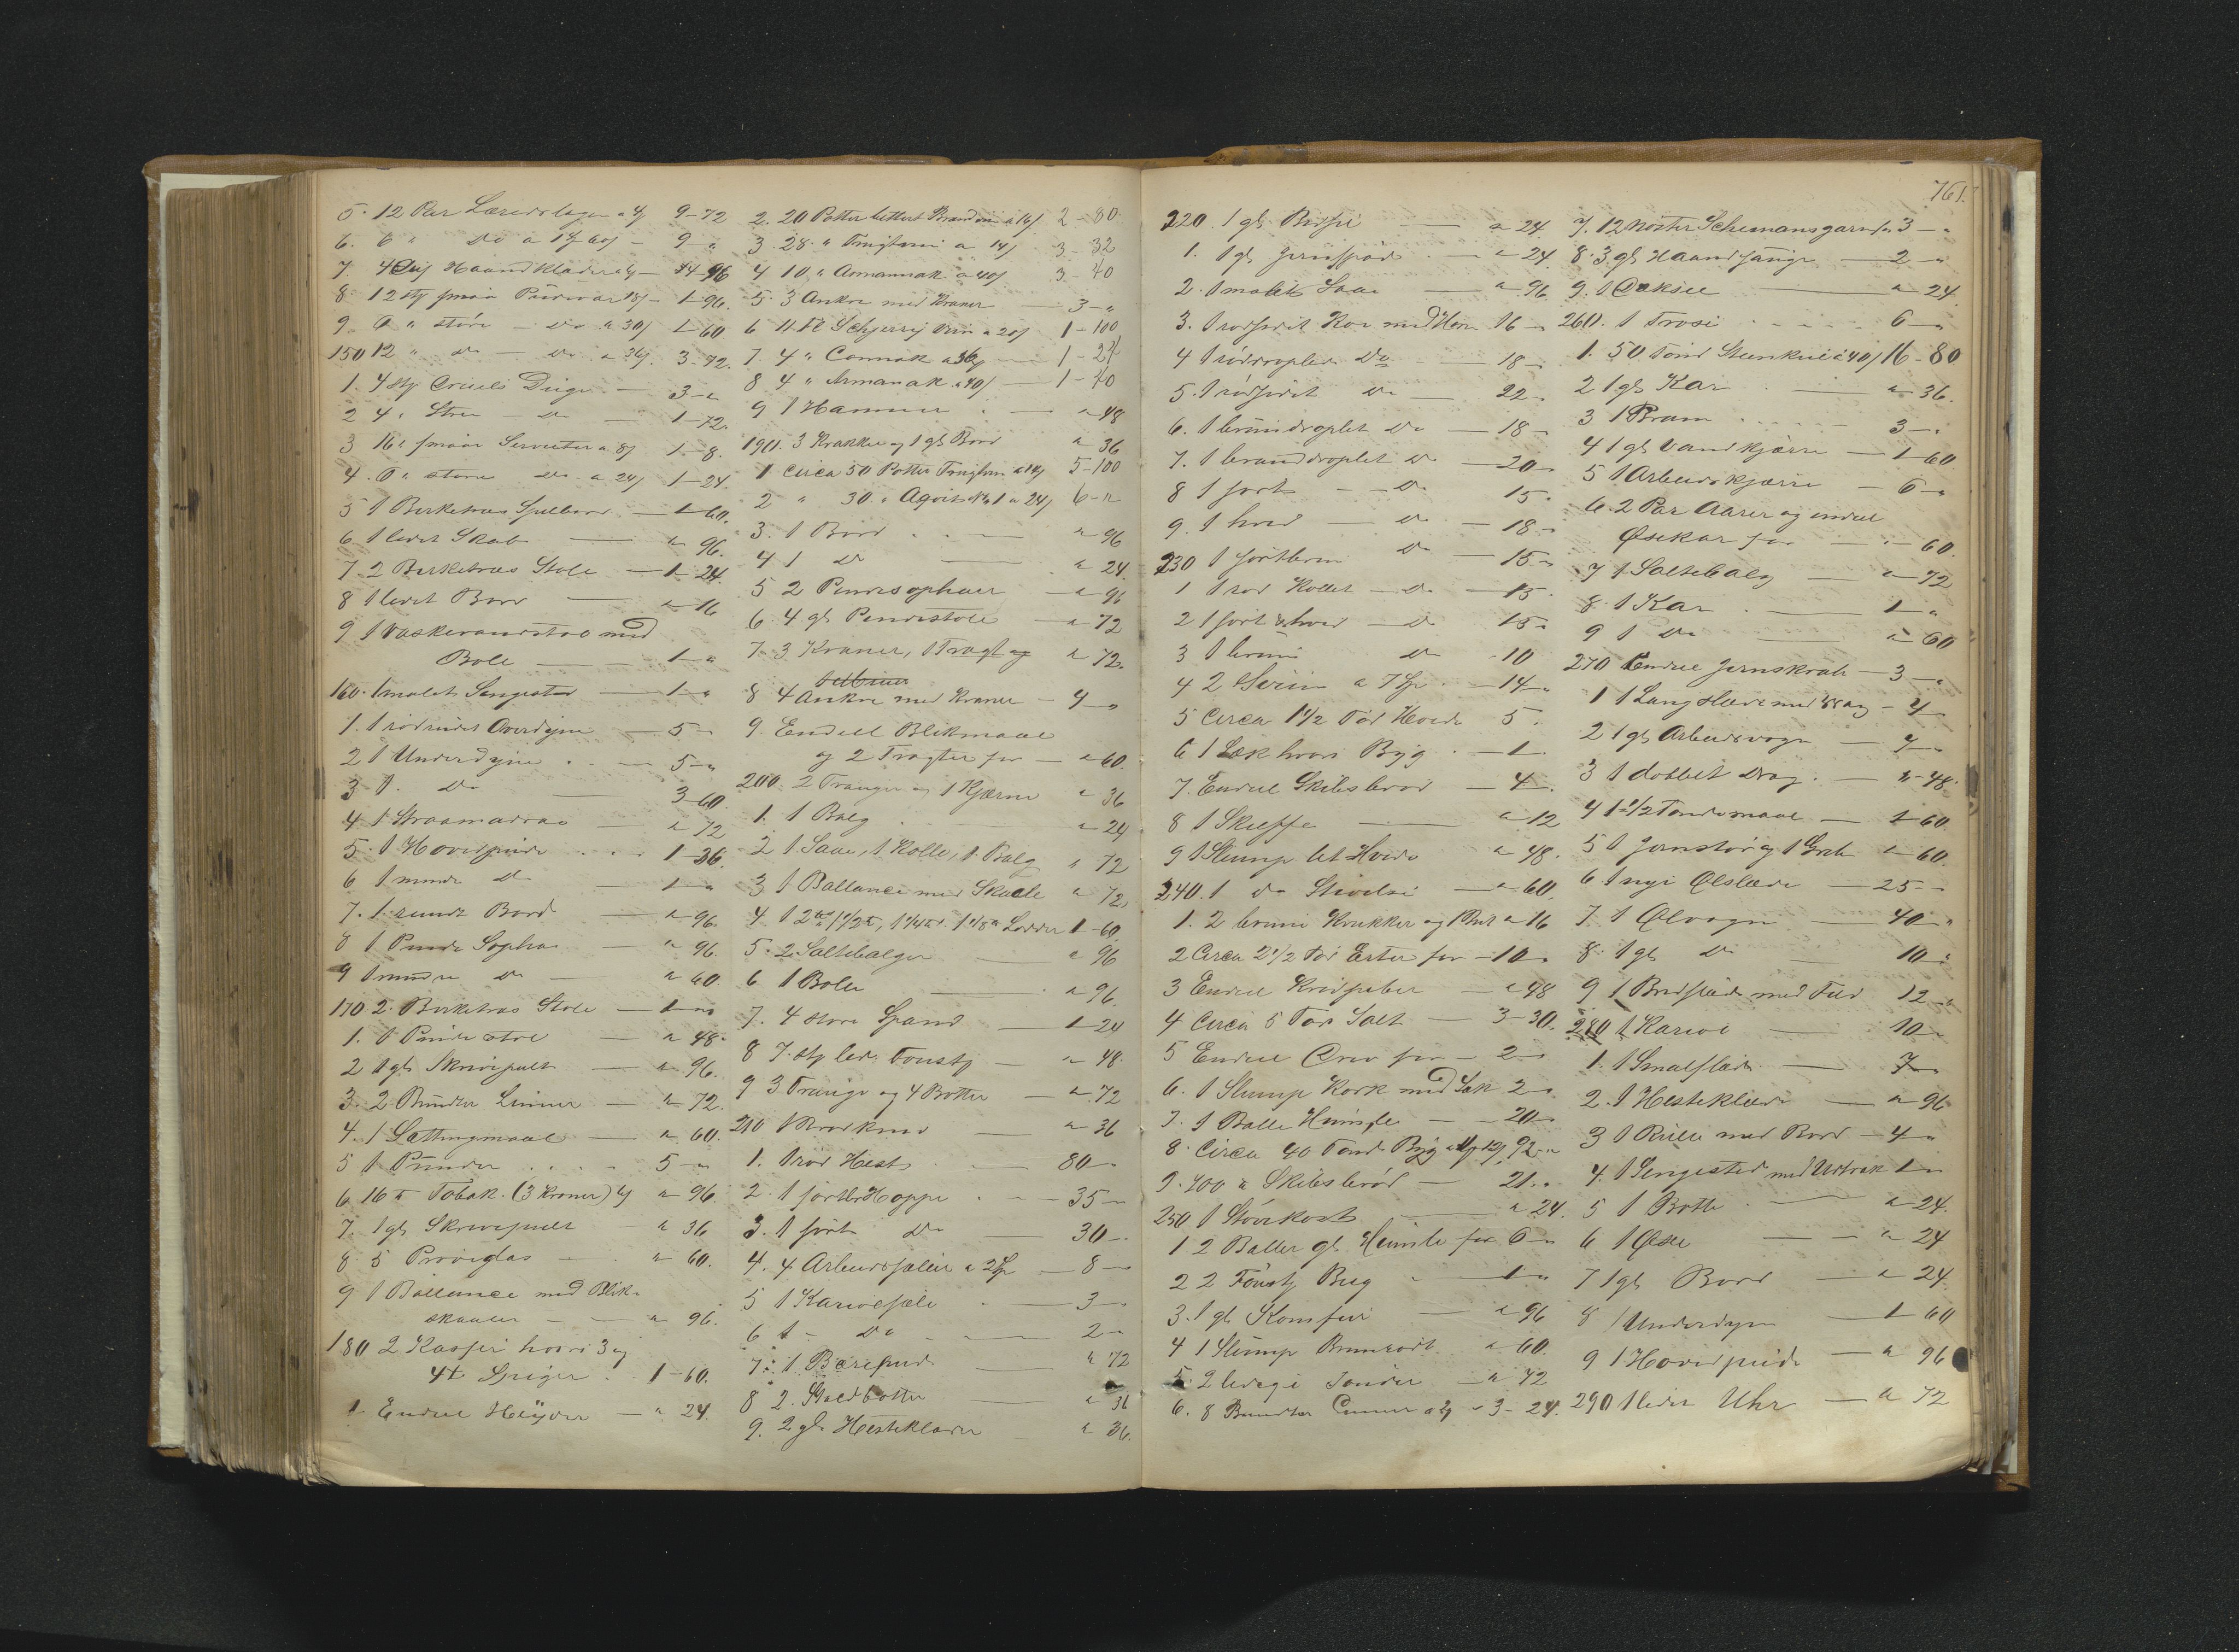 5. 12 Par Lærredslagen 9-72
6. 6 " do a 9 - "
7. 4 Haandklæder 14-96
8. 12 stk smaa 1-96.
9. 6 " støre - do a 30/ 1-60
150 12 " do - do a 36/. 3-72.
1. 4 stk Dreiels Duge - 3-"
2 4 " Stree - do 1-72.
3 16 " smaae Servietter a 8/ 1-8.
4. 6 " større do a 24/ 1-24.
5 1 Birketræs Spilbord - 1-60.
6 1 lidet Skab " 96.
7 2 Birketræs Stole - 1-24.
8 1 lidet Bord " 16
9 1 Vaskevandstol med
Bole 1-"
160. 1 malet Sengested 1-"
1. 1 Overdyne 5-"
2 1 Underdyne 5-"
3 1. do 3-60
4 1 Straamadras " 72
5. 1 Hovedpude 1-36.
6 1 mindre do 1-"
7. 1 rundt Bord " 96.
8 1 Pude Sopha " 96.
9 1 mindre do " 60.
170 2. Birketræs Stole - 1-"
1. 1 Pude stol " 48.
2 1 gl. Skrivepult " 96.
3. 2 Bundter Limmer " 72.
4. 1 Lættingmaal " 60.
5 1 Pünder 5-"
6 16 ℔ Tobak. (3 Kroner) " 96.
7. 1 gl. Skrivepult " 36
8. 5 Prøveglas " 60.
9 1 Ballance med Blik-
skaaler " 96.
180 2 Kasser hvori 3 og
4t Spiger. 1-60.
1. Endeel Høvder " 24.
2. 20 Potter lettert Brændeviin a 16/ 2-80
3. 28 " a 14/ 3-32
4 10 " Aomannak a 40/ 3-40
5. 3 Ankre med Kraner 3-"
6 11 Fl Scherrij Viin a 20/ 1-100
7. 4 " Connak a 36/ 1-24
8 4 " Armanak a 40/ 1-40
9 1 Hammer " 48
190. 3 Krakker og 1 gl. Bord " 36
1 Circa 50 Potter 5-100
2 " 30 " No 1 a 24/ 6-"
3. 1 Bord " 96
4 1 do " 24.
5 2 Pindesophaer " 96
6. 4 gl. Pindestole " 72
7 3 Kraner, 1 Tragt og " 72.
8 4 Ankre med Kraner - 4-"
9. Endeel Blikmaal
og 2 Tragter for " 60.
200. 2 Trauger og 1 Kjærne " 36
1. 1 Balg " 24
2 1 Saae, 1 Kolle, 1 Balg " 72
3 1 Ballance med Skaale " 72
4. 1 2℔, 1 1/2℔, 1 1/4℔, 1 1/8℔ Lodder 1-60.
5. 2 Saltebalger " 96
6 1 Bole " 96.
7. 4 store Spand 1-24
8 7 stk led. Foustg " 48.
9 3 Trauge og 4 Bøtter " 72
210 1 Brødkniv " 36
1. 1 rød Hest 80-"
2. 1 sortbr Hoppe 35-"
3. 1 sort do 30-.
4. 4 Arbeidsseler a 2 8-"
5 1 Karriolsele 3-"
6 1 - do 2-"
7. 1 Bæresed " 72
8 2. Staldbøtter " 36
9. 2 gl. Hesteklæder " 36.
761.
220. 1 gl. " 24
1. 1 gl. " 24
2. 1 malet Saae " 96
3. 1 Koe med Horn 16-"
4 1 røddroplet do 18-
5. 1 rødsidet do 22-
6. 1 bruundroplet do 18-
7. 1 branddroplet do 20-
8 1 sort do 15.
9. 1 hvid do 18-
230 1 sortbrun do 15-
1 1 rød Kollet do 15.
2 1 sort & hvid do 15.
3 1 bruun do 10
4 2 Sviin a 7 14-
5 Circa 1 1/2 Tød Hvede 5.
6 1 Sæk hvori Byg 1.
7. Endeel Skibsbrød 4.
8 1 Skieppe " 12
9 1 Slump let Hvede " 48.
240. 1 do Stivelse " 60.
1. 2 brune Krukker og 1 But " 16
2 Circa 2 1/2 Tød Erter for 10-
3 Endeel Kridpiber " 48
4 Circa 5 Tør Salt 3-30.
5 Endeel for 2-
6. 1 Slump Kork med Sæk 2-
7. 1 Balle Humle 20-
8. Circa 40 Tønde Byg 92-"
9. 400 ℔ Skibsbrød 21.-
250 1 Støvkost " 24.
1 2 Baller gl. Humle for 6-"
2 2 Foustg Beg 1-"
3. 1 gl. Komfur " 96
4 1 Slump Brunrødt " 60.
5. 2 ledige Tønder " 72
6. 8 Bundter 3-24.
7. 12 Nøster Schimansgarn 3-"
8. 3 gl. Haandsauge 2-"
9. 1 " 24
260. 1 Trose 6-"
1. 50 Tønd Steenkul a 40/ 16-80
2 1 gl. Kar " 36.
3 1 Pram 3-.
4 1 gl. Vandkjærre 1-60.
5 1 Arbeidskjærre 6-"
6. 2 Par Aarer og endeel
Øsekar for " 60.
7 1 Saltebalg " 72
8. 1 Kar 1-"
9 1 do " 60
270 Endeel Jernskrab 3-"
1 1 Langslæde med Drag 4-
2 1 gl. Arbeidsvogn 7-"
3 1 dobbelt Drag " 48.
4 1 1/2 Tøndemaal 1-60.
5 1 Jernstør og 1 Greb " 60.
6 1 nye Ølslæde 25-"
7. 1 Ølvogn 40-"
8. 1 gl. do 10-"
9 1 Bredslæde med Fæd 12-"
280 1 Kariol 10-
1. 1 Smalslæde 7-
2. 1 Hesteklæde " 96
3 1 Rulle med Bord 4-"
4. 1 Sengested med Udtræk 1-"
5 1 Bøtte " 24.
6 1 Øse " 24
7 1 gl. Bord " 24.
8 1 Underdyne 1-60
9 1 Hovedpude " 96
290 1 lidet Uhr " 72